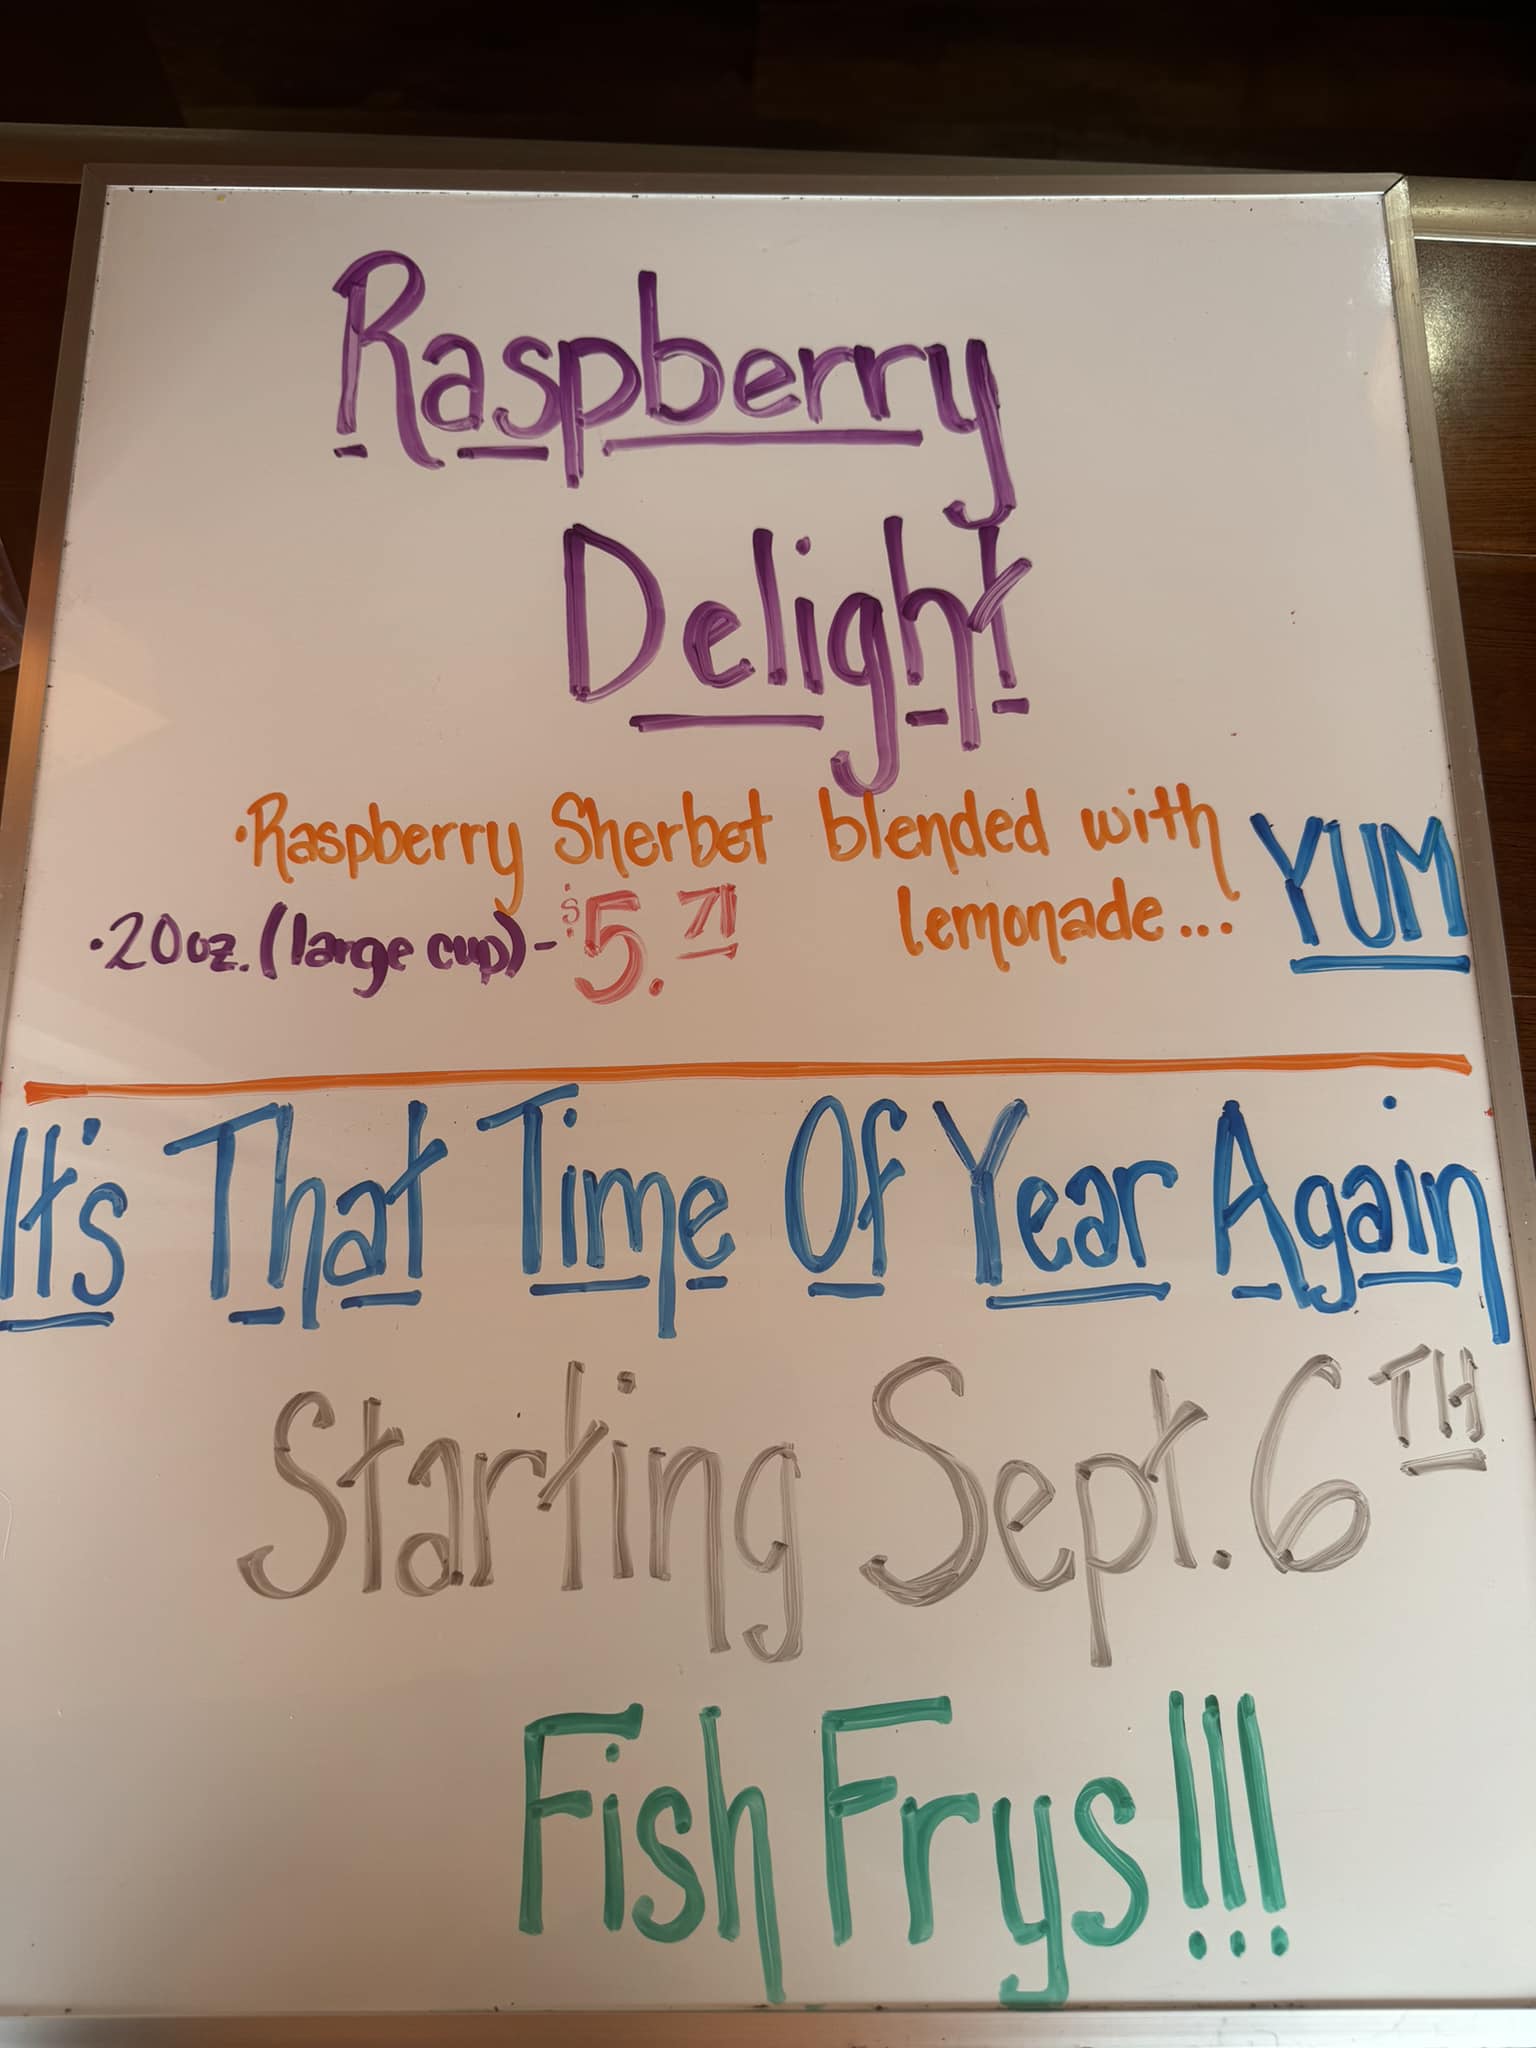 Raspberry
Delight
•Raspberry Sherbet blended with
lemonade... YUM
•20oz. (large cup)- $5.71
It's That Time Of Year Again
Starting Sept. 6TH
Fish Frys!!!